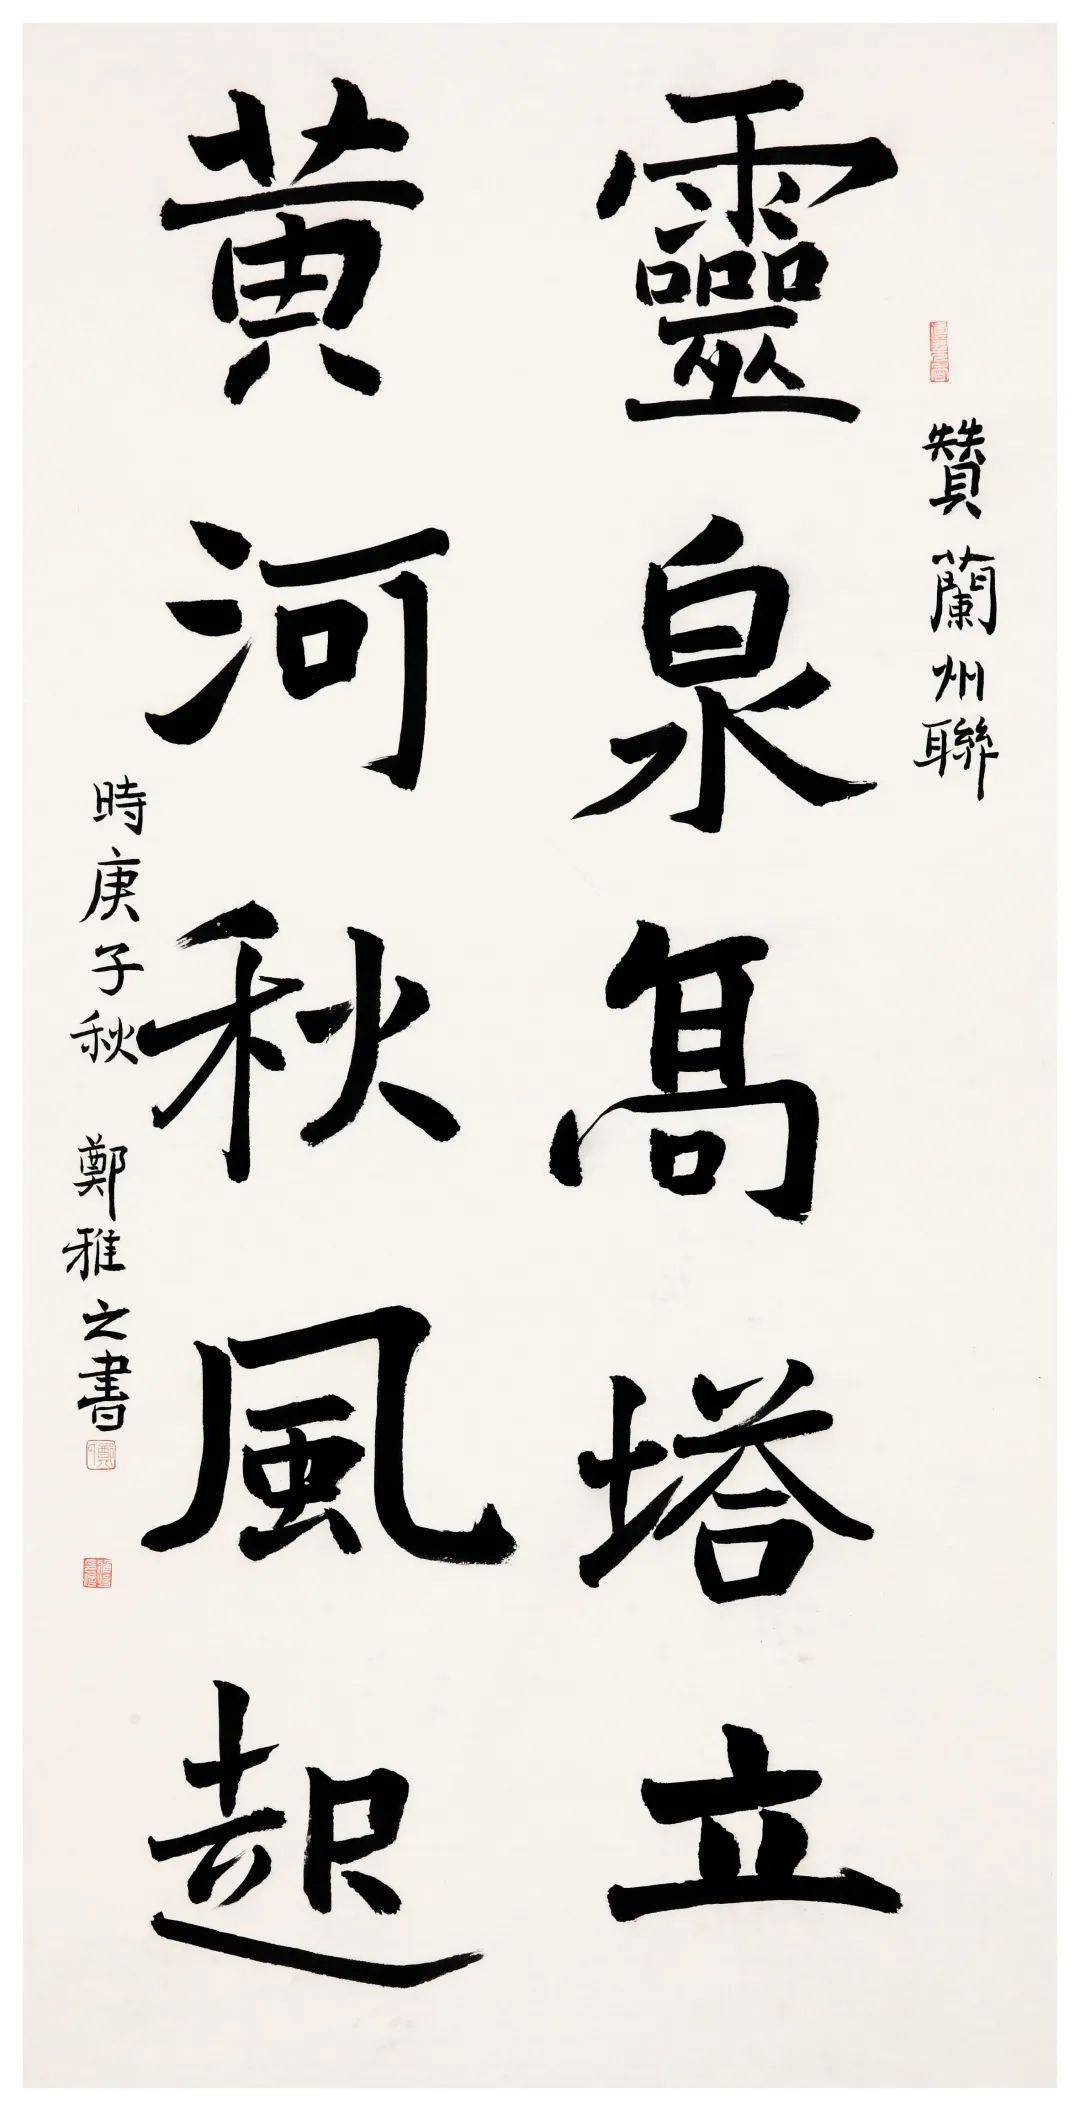 贊蘭州聯
靈泉高塔立
黃河秋風起
時庚子秋 鄭雅之書